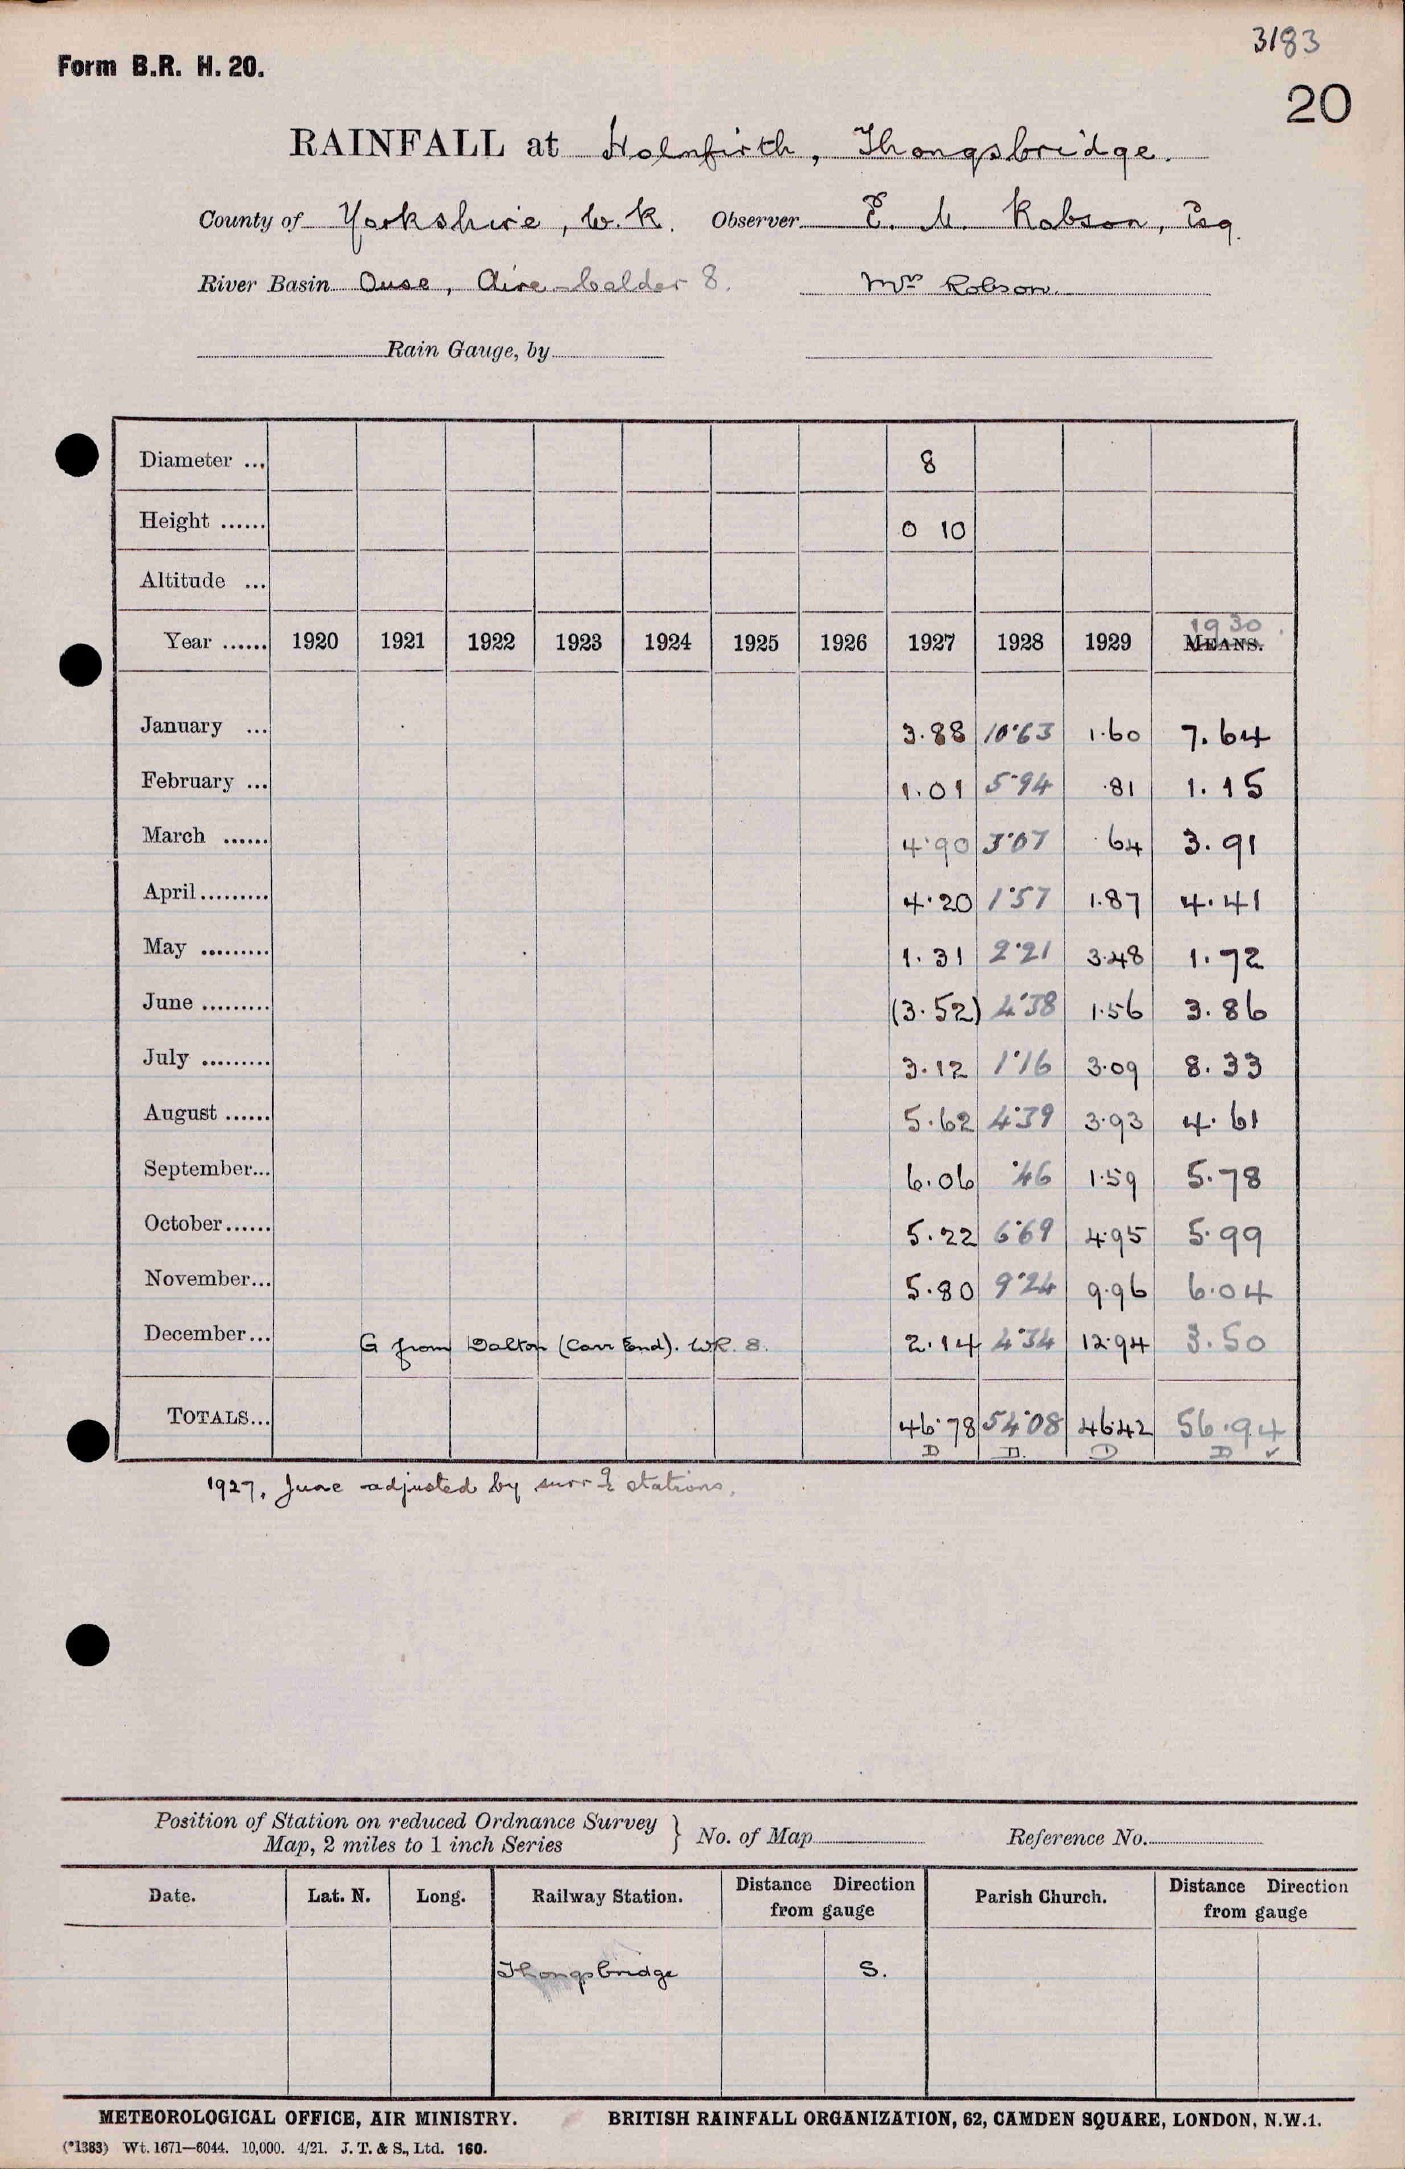 3183
Form B.R. H. 20.
20
RAINFALL at Holmfirth, Thongsbridge.
County of Yorkshire, W.R. Observer E. M. Robson, Esq.
River Basin Ouse, Aire - Calder 8. Mrs Robson.
Rain Gauge, by
Diameter ... 8
Height ...... 0 10
Altitude ...
1930
Year ...... 1920 1921 1922 1923 1924 1925 1926 1927 1928 1929 MEANS.
January ... 3.88 10.63 1.60 7.64
February ... 1.01 5.94 .81 1.15
March ...... 4.90 3.07 .64 3.91
April......... 4.20 1.57 1.87 4.41
May ......... 1.31 2.21 3.48 1.72
June ......... (3.52) 4.38 1.56 3.86
July ......... 3.12 1.16 3.09 8.33
August ...... 5.62 4.39 3.93 4.61
September... 6.06 .46 1.59 5.78
October...... 5.22 6.69 4.95 5.99
November... 5.80 9.24 9.96 6.04
December... G from Dalton (Carr End). WR. 8. 2.14 4.34 12.94 3.50
TOTALS... 46.78 54.08 46.42 56.94
D D. D D ✓
1927, June adjusted by surrg stations.
Position of Station on reduced Ordnance Survey
Map, 2 miles to 1 inch Series } No. of Map Reference No.
Date. Lat. N. Long. Railway Station. Distance Direction from gauge Parish Church. Distance Direction from gauge
Thongsbridge S.
METEOROLOGICAL OFFICE, AIR MINISTRY. BRITISH RAINFALL ORGANIZATION, 62, CAMDEN SQUARE, LONDON, N.W.1.
(*1383) Wt. 1671—6044. 10,000. 4/21. J. T. & S., Ltd. 160.